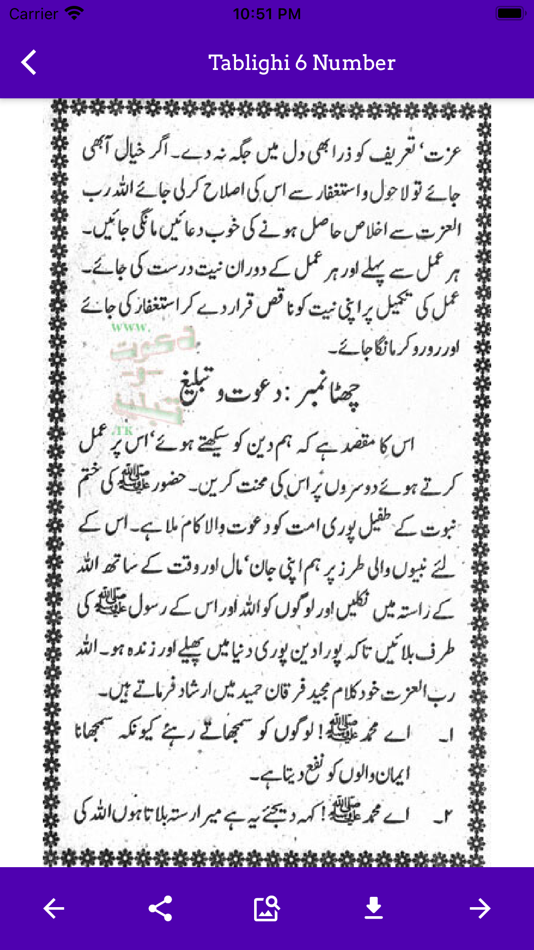 Carrier
10:51 PM
Tablighi 6 Number
عزت، تعریف کو ذرا بھی دل میں جگہ نہ دے۔ اگر خیال آبھی
جائے تو لاحول و استغفار سے اس کی اصلاح کرلی جائے اللہ رب
العزت سے اخلاص حاصل ہونے کی خوب دعائیں مانگی جائیں۔
ہر عمل سے پہلے اور ہر عمل کے دوران نیت درست کی جائے۔
عمل کی تکمیل پر اپنی نیت کو ناقص قرار دے کر استغفار کی جائے
اور رو رو کر مانگا جائے۔
www.
دعوت
و
تبلیغ
.TK
چھٹا نمبر : دعوت و تبلیغ
اس کا مقصد ہے کہ ہم دین کو سیکھتے ہوئے، اس پر عمل
کرتے ہوئے دوسروں پر اس کی محنت کریں۔ حضور ﷺ کی ختم
نبوت کے طفیل پوری امت کو دعوت والا کام ملا ہے۔ اس کے
لئے نبیوں والی طرز پر ہم اپنی جان، مال اور وقت کے ساتھ اللہ
کے راستہ میں نکلیں اور لوگوں کو اللہ اور اس کے رسول ﷺ کی
طرف بلائیں تاکہ پورا دین پوری دنیا میں پھیلے اور زندہ ہو۔ اللہ
رب العزت خود کلام مجید فرقان حمید میں ارشاد فرماتے ہیں۔
۱۔ اے محمد ﷺ! لوگوں کو سمجھاتے رہئے کیونکہ سمجھانا
ایمان والوں کو نفع دیتا ہے۔
۲۔ اے محمد ﷺ! کہہ دیجئے یہ ہے میرا رستہ بلاتا ہوں اللہ کی